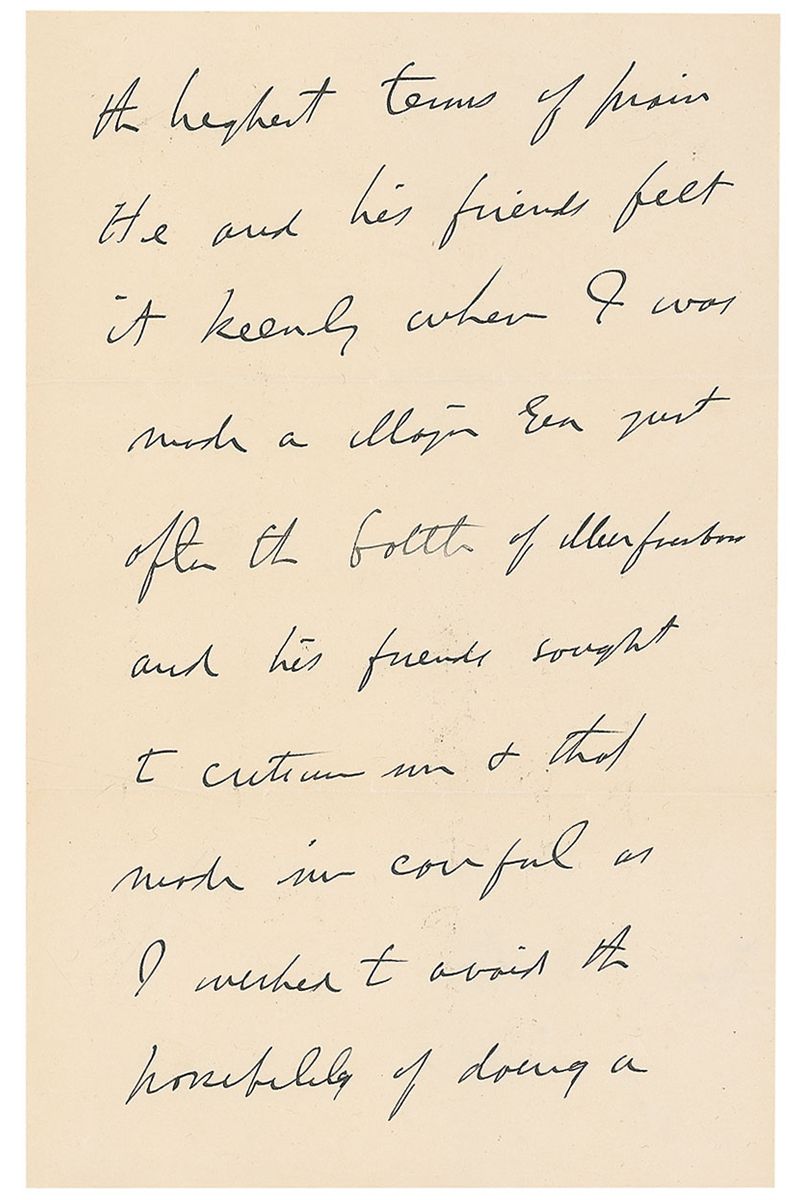 the highest terms of praise
He and his friends felt
it keenly when I was
made a Major Gen just
after the battle of Murfreesboro
and his friends sought
to criticise me & that
made me careful as
I wished to avoid the
possibility of doing a